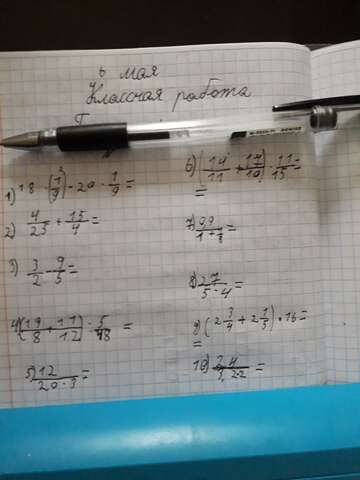 6 мая
Классная работа
Г
1) 18 · (1/9)² - 20 · 1/9 =
2) 4/25 + 15/4 =
3) 3/2 - 9/5 =
4) (19/8 + 11/12) · 5/48 =
5) 12/20·3 =
6) (14/11 + 17/10) · 11/15 =
=
7) 99/1+8 =
8) 27/5·4 =
9) (2 3/4 + 2 1/5) · 16 =
=
10) =